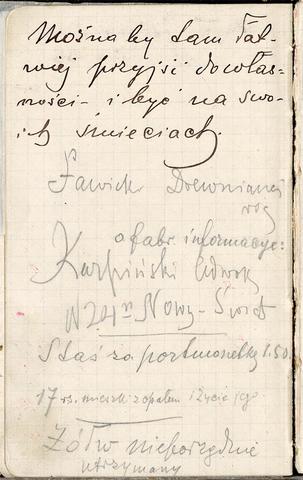 Możnaby tam łat-
wiej przyjść do włas-
ności - i być na swo-
ich śmieciach.
Drewnianej
róg
o fabr. informacye:
Karpiński Adwok
N 24 n Nowy-Świat
Staś za portmonetkę 1.50
17 rs. mieszk z opałem i życie jego
Żółw nieporządnie
utrzymany